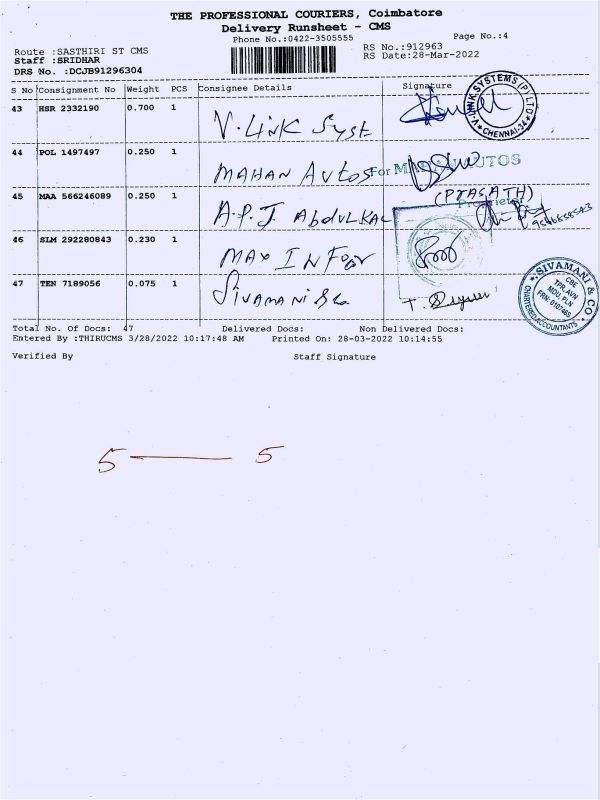 THE PROFESSIONAL COURIERS, Coimbatore
Delivery Runsheet - CMS
Phone No.:0422-3505555
Page No.:4
Route :SASTHIRI ST CMS
RS No.:912963
Staff :SRIDHAR
RS Date:28-Mar-2022
DRS No. :DCJB91296304
S No Consignment No Weight PCS Consignee Details Signature
43 HSR 2332190 0.700 1 V.Link Syst
V-LINK SYSTEMS (P) LTD
CHENNAI-34
44 POL 1497497 0.250 1 MAHAN AUTOS
For AUTOS
45 MAA 566246089 0.250 1 A.P.J AbdULKAL
(PrASATH)
46 SLM 292280843 0.230 1 MAX INFOR
47 TEN 7189056 0.075 1 Sivamani &Co
SIVAMANI & CO
CBE
TPR, AVN
MDU, PLN
CHARTERED ACCOUNTANTS
Total No. Of Docs: 47 Delivered Docs: Non Delivered Docs:
Entered By :THIRUCMS 3/28/2022 10:17:48 AM Printed On: 28-03-2022 10:14:55
Verified By Staff Signature
5 — 5